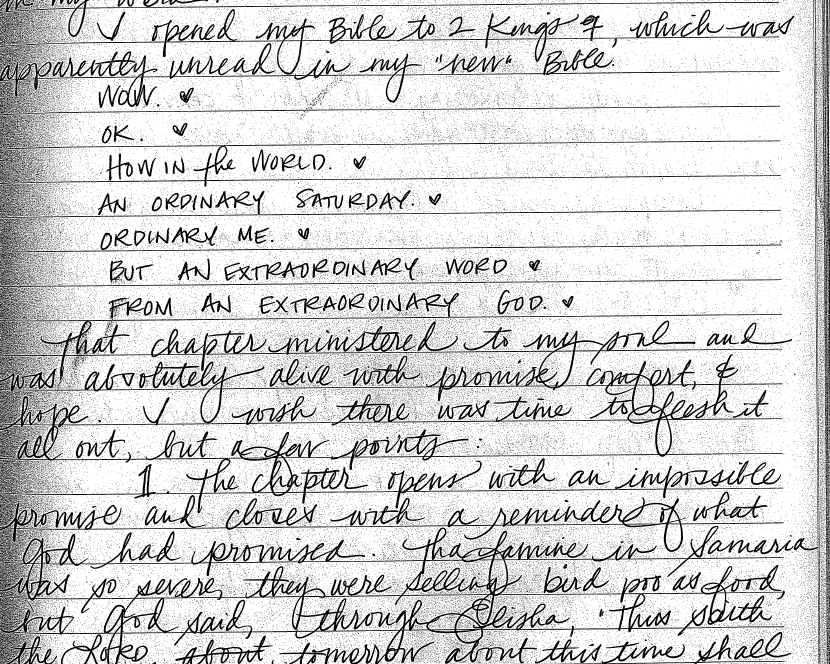 in my word.
I opened my Bible to 2 Kings 7, which was
apparently unread in my "new" Bible.
WOW. ♥
OK. ♥
HOW IN the WORLD. ♥
AN ORDINARY SATURDAY. ♥
ORDINARY ME. ♥
BUT AN EXTRAORDINARY WORD ♥
FROM AN EXTRAORDINARY GOD. ♥
That chapter ministered to my soul and
was absolutely alive with promise, comfort, &
hope. I wish there was time to flesh it
all out, but a few points:
1. The chapter opens with an impossible
promise and closes with a reminder of what
God had promised. The famine in Samaria
was so severe, they were selling bird poo as food,
but God said, through Elisha, "Thus saith
the LORD, about tomorrow about this time shall